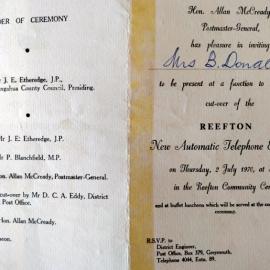 DER OF CEREMONY
r J. E. Etheredge, J.P.,
angahua County Council, Presiding.
Mr J. E: Etheredge, J.P.
Mr P. Blanchfield, M.P.
on. Allan McCready, Postmaster-General.
cut-over by Mr D. C. A. Eddy, District
Post Office.
on. Allan McCready.
eon.
Hon. Allan McCready
Postmaster-General,
has pleasure in inviting
Mrs B. Donal
to be present at a function to
cut-over of the
REEFTON
New Automatic Telephone E
on Thursday, 2 July 1970, at
in the Reefton Community Ce
and at buffet luncheon which will be served at the co
ceremony.
R.S.V.P. to
District Engineer,
Post Office, Box 379, Greymouth.
Telephone 4044, Extn. 89.